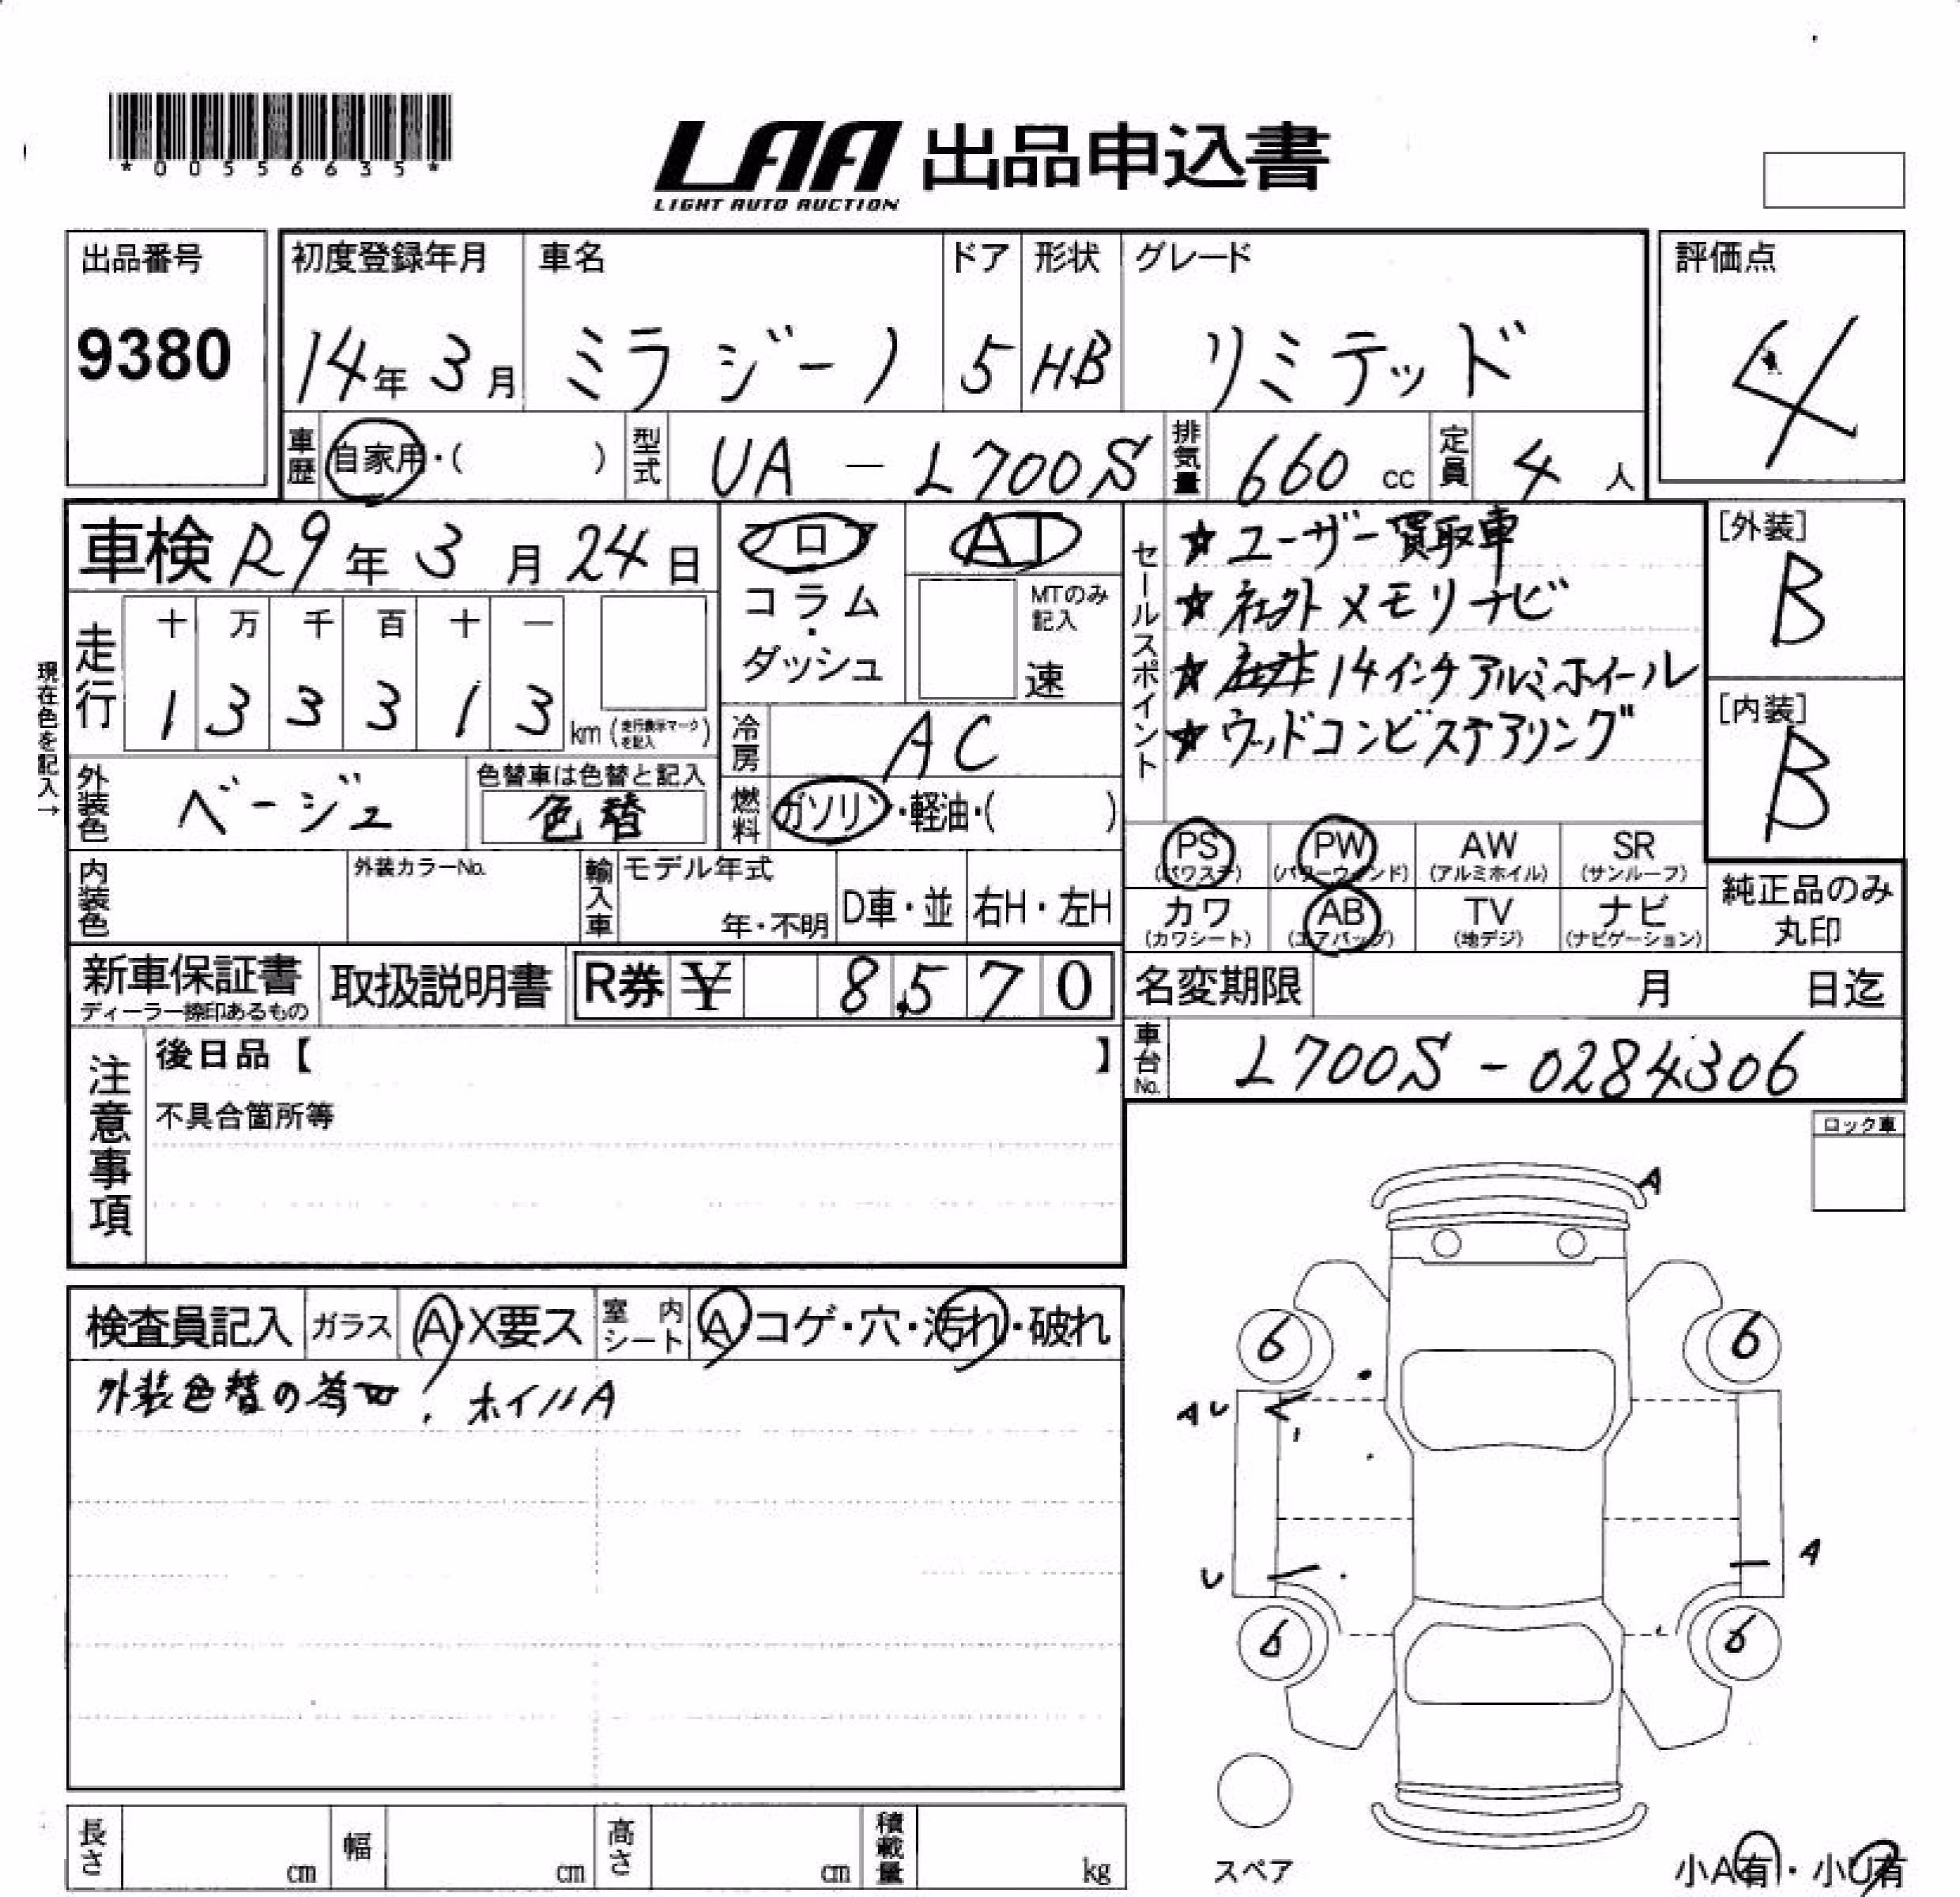 *00556635*
LAA 出品申込書
LIGHT AUTO AUCTION
出品番号
9380
初度登録年月 車名 ドア 形状 グレード
14年 3月 ミラジーノ 5 HB リミテッド
評価点
4
車歴 自家用・( ) 型式 UA-L700S 排気量 660 cc 定員 4 人
車検 R9年 3月 24日
フロア
コラム
・
ダッシュ
AT
MTのみ
記入
速
走行 十 万 千 百 十 一
1 3 3 3 1 3 km (走行表示マークを記入)
現在色を記入→
冷房 AC
外装色 ベージュ 色替車は色替と記入
色替
燃料 ガソリン・軽油・( )
セールスポイント
☆ユーザー買取車
☆社外メモリナビ
☆ 14インチアルミホイール
☆ウッドコンビステアリング
[外装]
B
[内装]
B
PS (パワステ) PW (パワーウインド) AW (アルミホイル) SR (サンルーフ)
カワ (カワシート) AB (エアバッグ) TV (地デジ) ナビ (ナビゲーション)
純正品のみ
丸印
内装色 外装カラーNo. 輸入車 モデル年式
年・不明 D車・並 右H・左H
新車保証書 取扱説明書 R券 ¥ 8,570
ディーラー捺印あるもの
名変期限 月 日迄
車台No. L700S-0284306
注意事項
後日品【 】
不具合箇所等
ロック車
検査員記入 ガラス A・X要ス 室内シート A・コゲ・穴・汚れ・破れ
外装色替の為 ホイルA
A
6 6
AU
U
A
6 6
スペア
小A有・小U有
長さ cm 幅 cm 高さ cm 積載量 kg